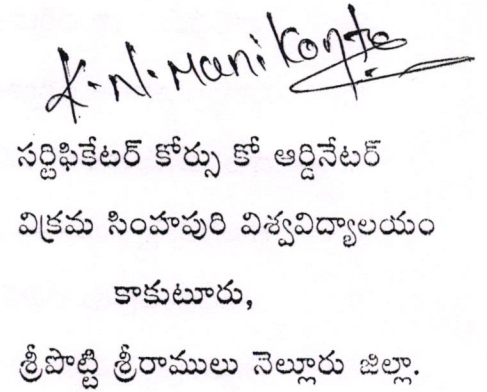 K.N.Manikanta
సర్టిఫికేటర్ కోర్సు కో ఆర్డినేటర్
విక్రమ సింహపురి విశ్వవిద్యాలయం
కాకుటూరు,
శ్రీపొట్టి శ్రీరాములు నెల్లూరు జిల్లా.